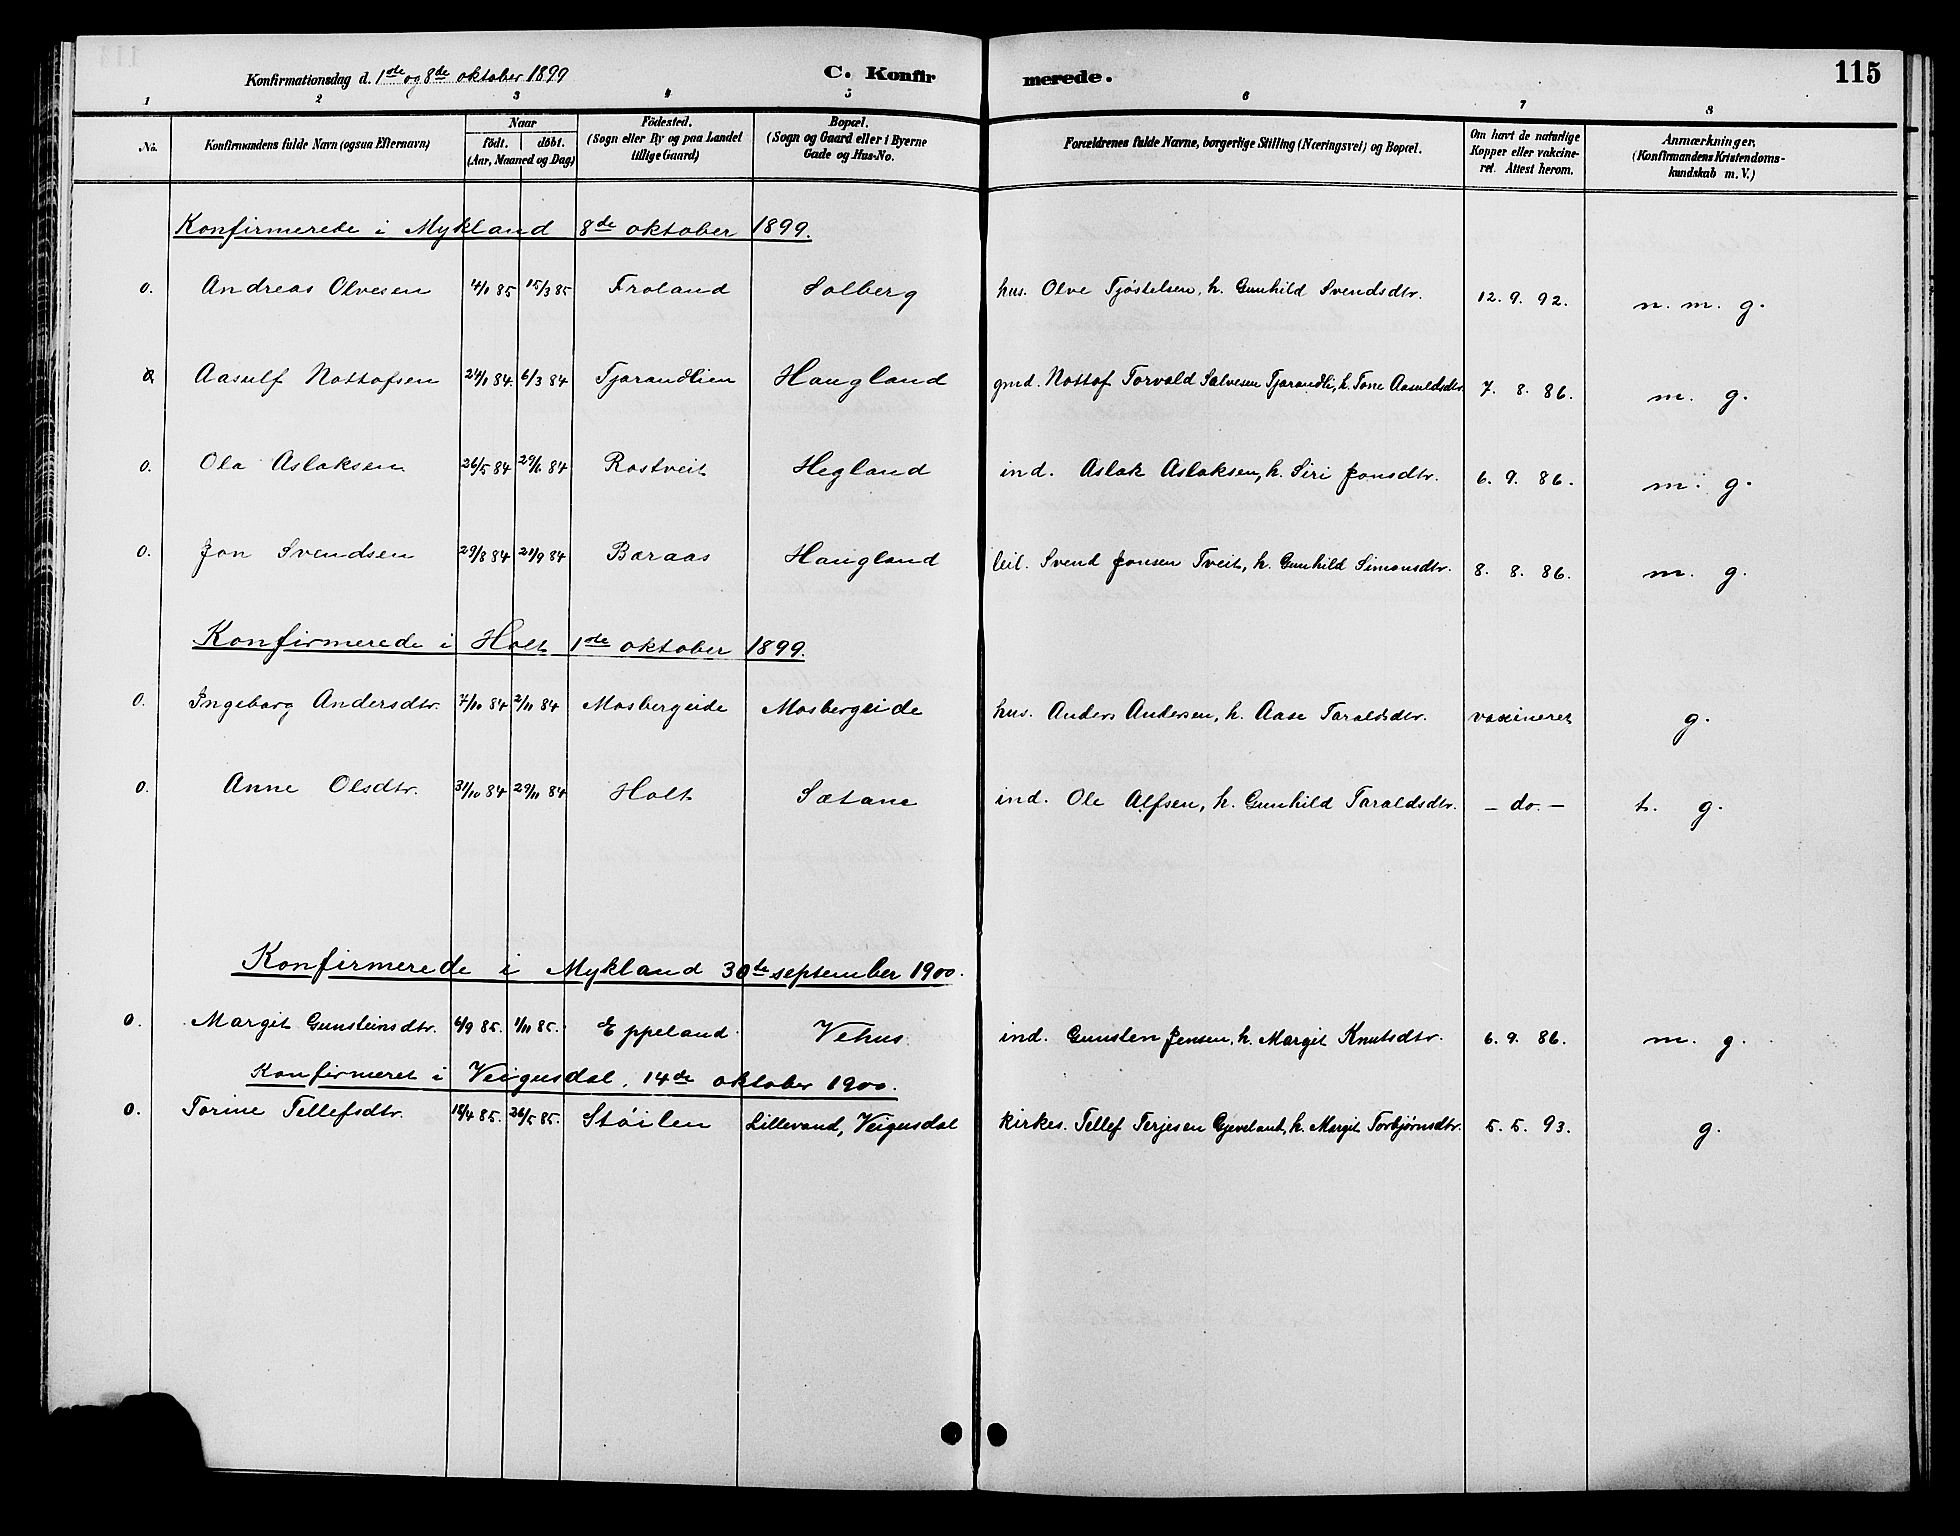 Konfirmationsdag d. 1ste og 8de oktober 1899
C. Konfirmerede.
115
1 2 3 4 5 6 7 8
No.
Konfirmandens fulde Navn (ogsaa Efternavn)
Naar
födt. döbt.
(Aar, Maaned og Dag)
Födested.
(Sogn eller By og paa Landet
tillige Gaard)
Bopæl.
(Sogn og Gaard eller i Byerne
Gade og Hus-No.
Forældrenes fulde Navne, borgerlige Stilling (Næringsvei) og Bopæl.
Om havt de naturlige
Kopper eller vakcine-
ret. Attest herom.
Anmærkninger.
(Konfirmandens Kristendoms-
kundskab m. V.)
Konfirmerede i Mykland 8de oktober 1899.
0. Andreas Olvesen 14/1 85 15/3 85 Froland Solberg hus. Olve Tjöstelsen, h. Gunhild Svendsdtr. 12. 9. 92. n. m. g.
Aasulf Nottofsen 24/1 84. 6/3 84 Tjarandlien Haugland gmd. Nottof Torvald Salvesen Tjarandli, h. Tone Aasuldsdtr. 7. 8. 86. m. g.
0. Ola Aslaksen 26/5 84 29/6 84 Rostveit Hegland ind. Aslak Aslaksen, h. Siri Jonsdtr. 6. 9. 86. m. g.
0. Jon Svendsen 29/8 84 21/9 84 Baraas Haugland leil. Svend Jonsen Tveit, h. Gunhild Simonsdtr. 8. 8. 86. m. g.
Konfirmerede i Holt 1ste oktober 1899.
0. Ingeborg Andersdtr. 7/10 84 2/11 84 Mosbergeide Mosbergeide hus. Anders Andersen, h. Aase Taraldsdtr. vaxineret g.
0. Anne Olsdtr. 31/10 84 29/11 84 Holt Sætane ind. Ole Alfsen, h. Gunhild Taraldsdtr. – do. – t. g.
Konfirmerede i Mykland 30te september 1900.
0. Margit Gunsteinsdtr. 6/9 85. 1/11 85. Eppeland Vehus ind. Gunsten Jensen, h. Margit Knutsdtr. 6. 9. 86. m. g.
Konfirmeret i Veigusdal, 14de oktober 1900.
0. Torine Tellefsdtr. 18/4 85. 26/5 85. Stöilen Lillevand, Veigusdal kirkes. Tellef Terjesen Gjevelant, h. Margit Torbjørnsdtr. 5. 5. 93. g.